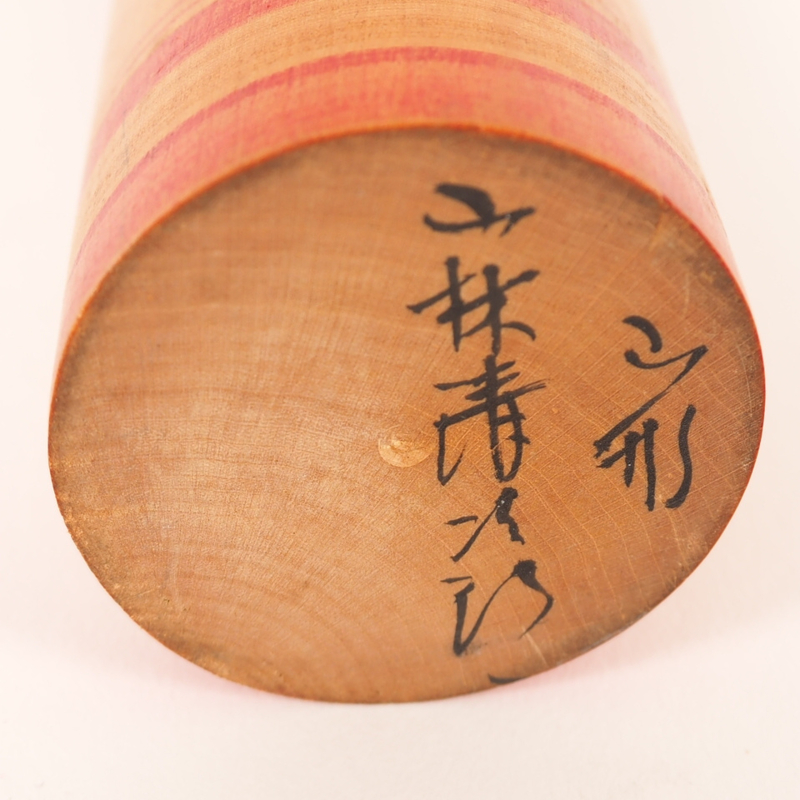 山形
小林清次郎